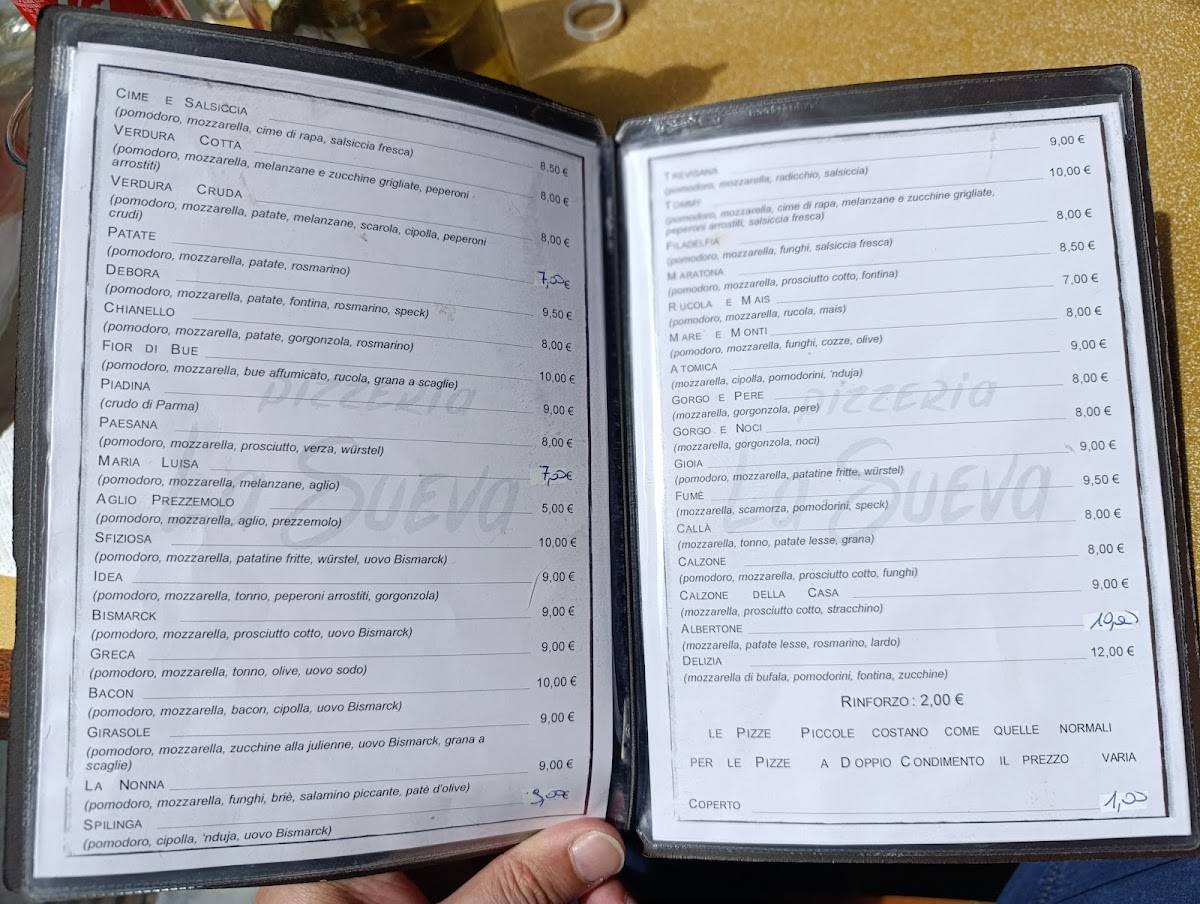 CIME E SALSICCIA 8,50 €
(pomodoro, mozzarella, cime di rapa, salsiccia fresca)
VERDURA COTTA 8,00 €
(pomodoro, mozzarella, melanzane e zucchine grigliate, peperoni
arrostiti)
VERDURA CRUDA 8,00 €
(pomodoro, mozzarella, patate, melanzane, scarola, cipolla, peperoni
crudi)
PATATE 7,00€
(pomodoro, mozzarella, patate, rosmarino)
DEBORA 9,50 €
(pomodoro, mozzarella, patate, fontina, rosmarino, speck)
CHIANELLO 8,00 €
(pomodoro, mozzarella, patate, gorgonzola, rosmarino)
FIOR DI BUE 10,00 €
(pomodoro, mozzarella, bue affumicato, rucola, grana a scaglie)
PIADINA 9,00 €
(crudo di Parma)
PAESANA 8,00 €
(pomodoro, mozzarella, prosciutto, verza, würstel)
MARIA LUISA 7,00€
(pomodoro, mozzarella, melanzane, aglio)
AGLIO PREZZEMOLO 5,00 €
(pomodoro, mozzarella, aglio, prezzemolo)
SFIZIOSA 10,00 €
(pomodoro, mozzarella, patatine fritte, würstel, uovo Bismarck)
IDEA 9,00 €
(pomodoro, mozzarella, tonno, peperoni arrostiti, gorgonzola)
BISMARCK 9,00 €
(pomodoro, mozzarella, prosciutto cotto, uovo Bismarck)
GRECA 9,00 €
(pomodoro, mozzarella, tonno, olive, uovo sodo)
BACON 10,00 €
(pomodoro, mozzarella, bacon, cipolla, uovo Bismarck)
GIRASOLE 9,00 €
(pomodoro, mozzarella, zucchine alla julienne, uovo Bismarck, grana a
scaglie)
LA NONNA 9,00 €
(pomodoro, mozzarella, funghi, briè, salamino piccante, patè d'olive)
SPILINGA 9,00€
(pomodoro, cipolla, 'nduja, uovo Bismarck)
PIZZERIA
La SUEVA
TREVISANA 9,00 €
(pomodoro, mozzarella, radicchio, salsiccia)
TOMMY 10,00 €
(pomodoro, mozzarella, cime di rapa, melanzane e zucchine grigliate,
peperoni arrostiti, salsiccia fresca)
FILADELFIA 8,00 €
(pomodoro, mozzarella, funghi, salsiccia fresca)
MARATONA 8,50 €
(pomodoro, mozzarella, prosciutto cotto, fontina)
RUCOLA E MAIS 7,00 €
(pomodoro, mozzarella, rucola, mais)
MARE E MONTI 8,00 €
(pomodoro, mozzarella, funghi, cozze, olive)
ATOMICA 9,00 €
(mozzarella, cipolla, pomodorini, 'nduja)
GORGO E PERE 8,00 €
(mozzarella, gorgonzola, pere)
GORGO E NOCI 8,00 €
(mozzarella, gorgonzola, noci)
GIOIA 9,00 €
(pomodoro, mozzarella, patatine fritte, würstel)
FUMÈ 9,50 €
(mozzarella, scamorza, pomodorini, speck)
CALLÀ 8,00 €
(mozzarella, tonno, patate lesse, grana)
CALZONE 8,00 €
(pomodoro, mozzarella, prosciutto cotto, funghi)
CALZONE DELLA CASA 9,00 €
(mozzarella, prosciutto cotto, stracchino)
ALBERTONE 10,00
(mozzarella, patate lesse, rosmarino, lardo)
DELIZIA 12,00 €
(mozzarella di bufala, pomodorini, fontina, zucchine)
RINFORZO : 2,00 €
LE PIZZE PICCOLE COSTANO COME QUELLE NORMALI
PER LE PIZZE A DOPPIO CONDIMENTO IL PREZZO VARIA
COPERTO 1,00
PIZZERIA
La SUEVA